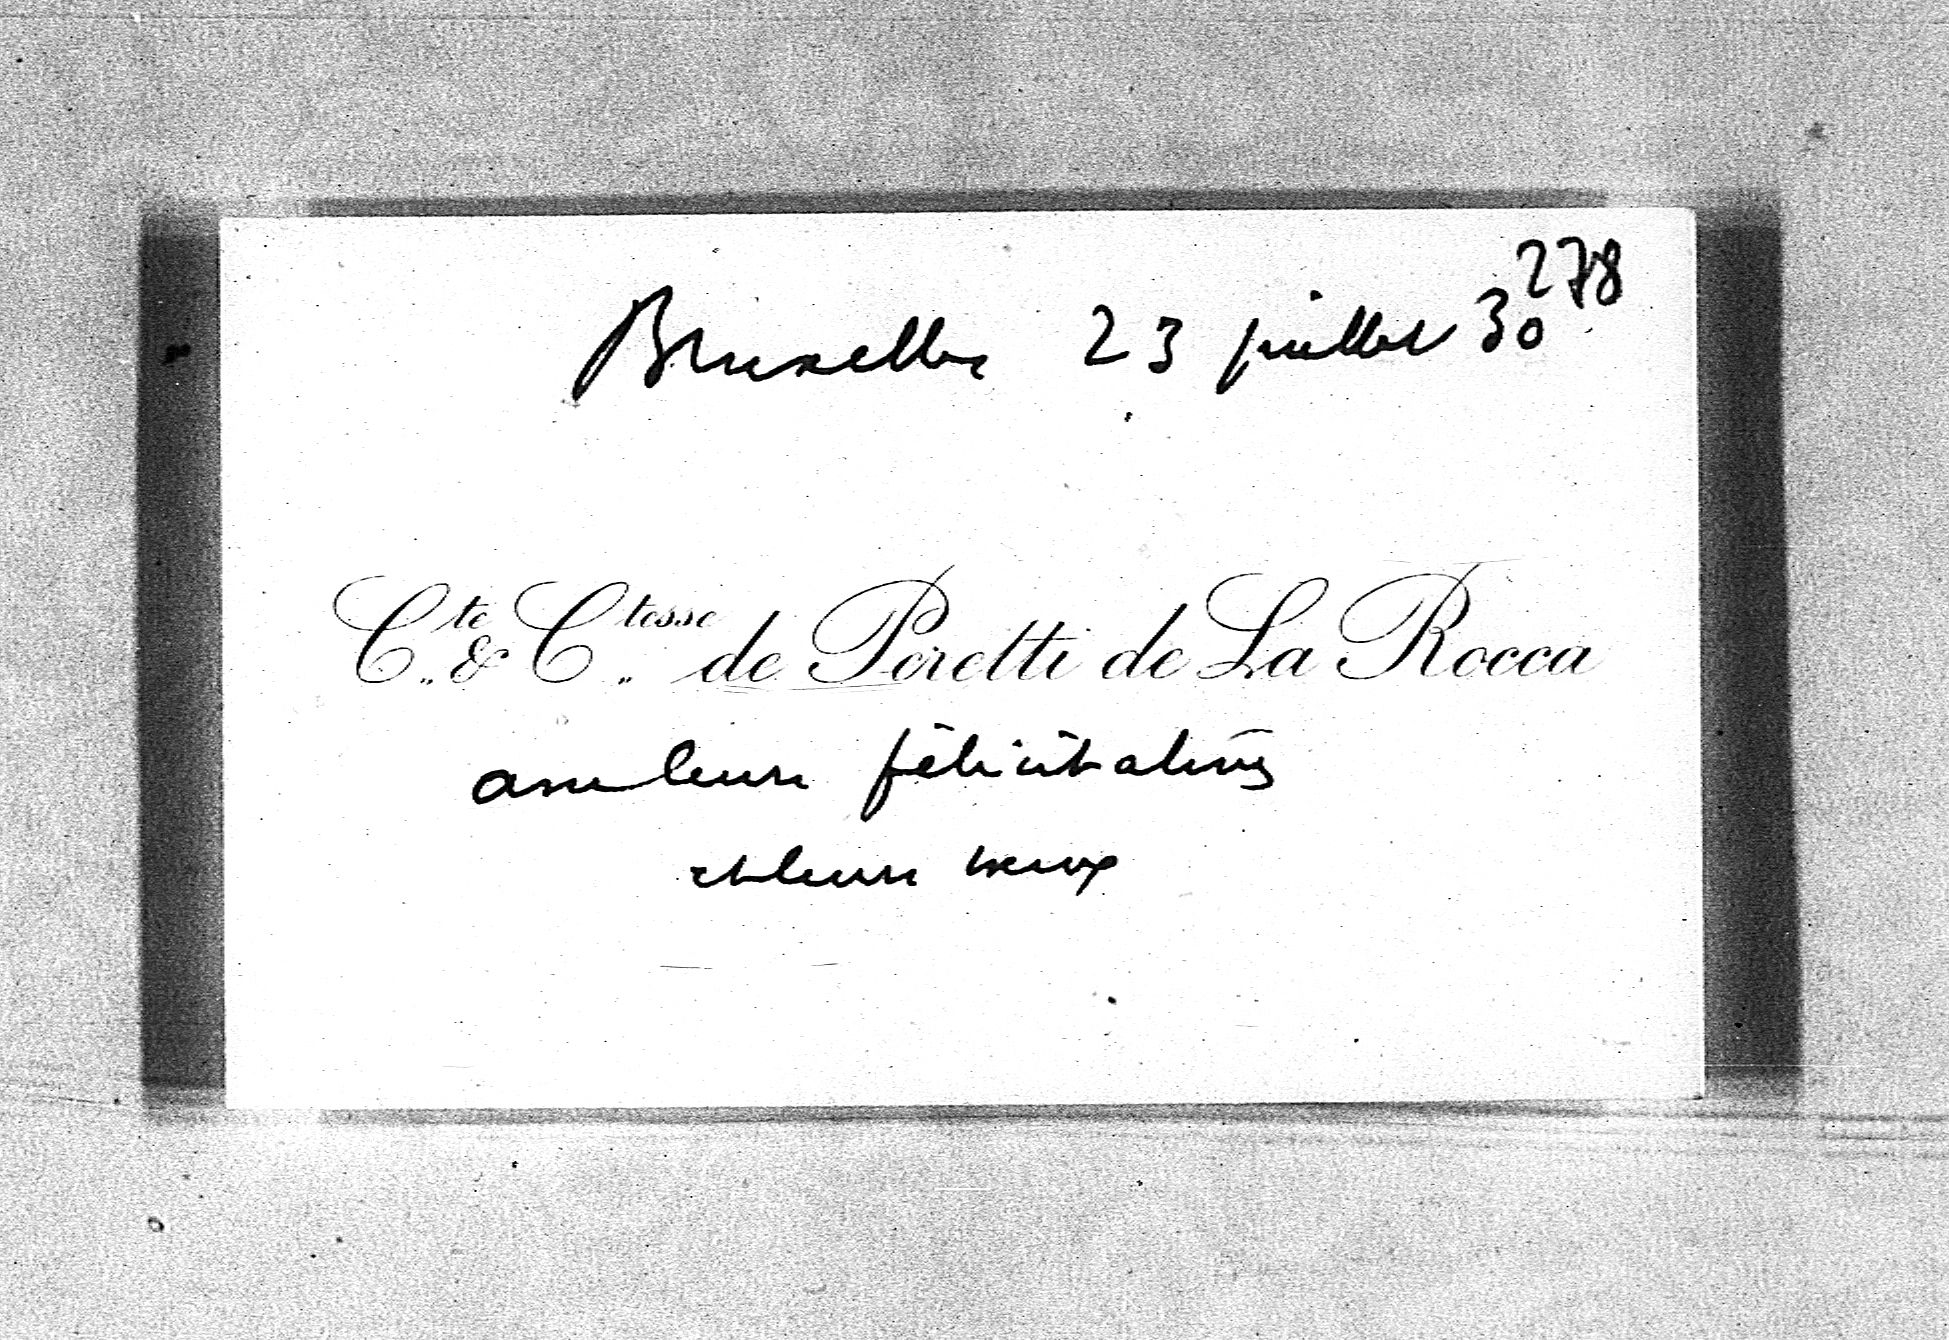 278
Bruxelles 23 juillet 30
Cte & Ctesse de Peretti de La Rocca
avec leurs félicitations
et leurs vœux